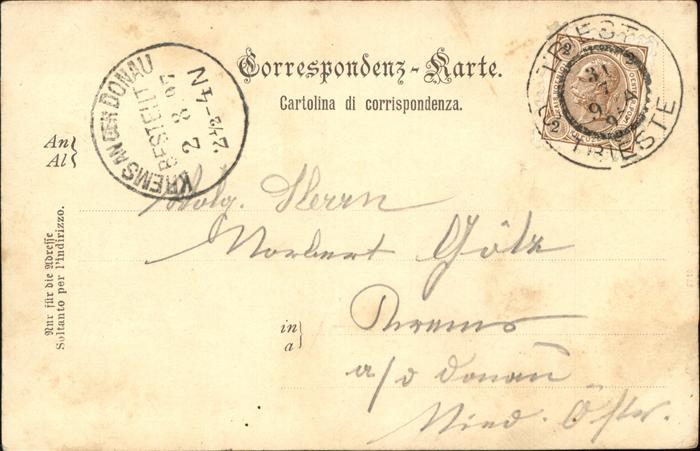 Correspondenz-Karte.
Cartolina di corrispondenza.
KREMS AN DER DONAU
BESTELLT
2 8 97
2½-4 N
TRIEST
31
7
97
TRIESTE
2
2
An
Al
Wolg. Herrn
Norbert Götz
in
a
Krems
a/d Donau
Nied. Öster.
Nur für die Adresse
Soltanto per l'indirizzo.